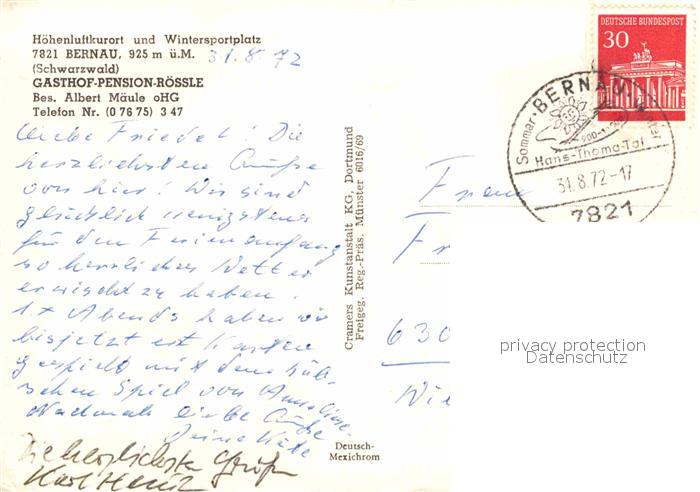 Höhenluftkurort und Wintersportplatz
7821 BERNAU, 925 m ü.M. 31.8.72
(Schwarzwald)
GASTHOF-PENSION-RÖSSLE
Bes. Albert Mäule oHG
Telefon Nr. (0 76 75) 3 47
Liebe Friedel! Die
herzlichsten Grüße
von hier! Wir sind
glücklich wenigstens
für den Ferienanfang
so herrliches Wetter
erwischt zu haben.
1 x Abends haben wir
bisjetzt erst Karten
gespielt mit dem hüb-
schen Spiel von Anneliese.
Nochmals liebe Grüße
Deine Käte
Die herzlichsten Grüße
Karl Heinz
Cramers Kunstanstalt KG, Dortmund
Freigeg. Reg.-Präs. Münster 6016/69
Deutsch-
Mexichrom
DEUTSCHE BUNDESPOST
30
Sommer · BERNAU · Winter
900-1
Hans-Thoma-Tal
31.8.72-17
7821
Frau
Fr
630
Wie
privacy protection
Datenschutz